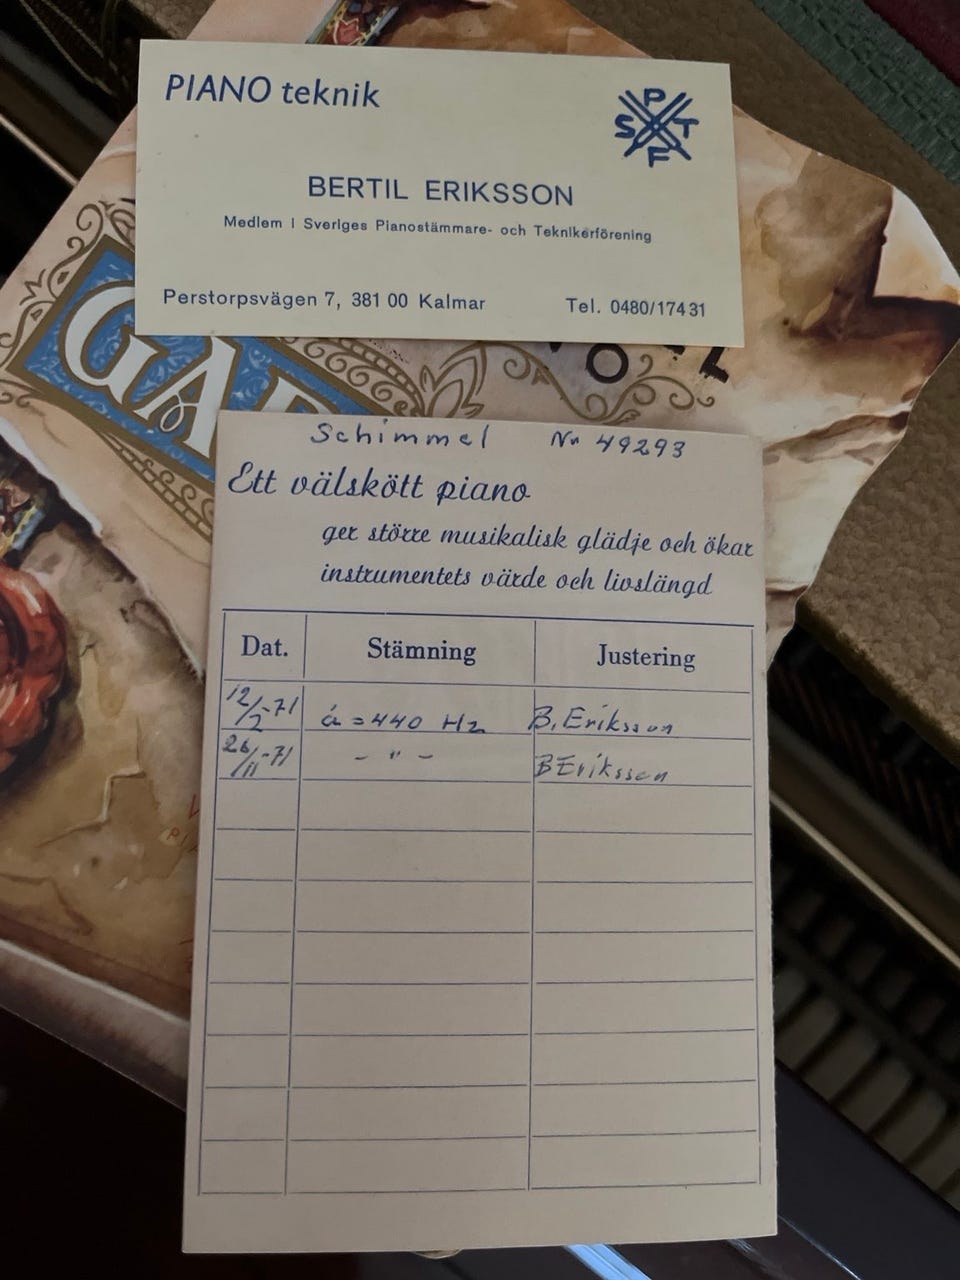 PIANO teknik
P
S T
F
BERTIL ERIKSSON
Medlem i Sveriges Pianostämmare- och Teknikerförening
Perstorpsvägen 7, 381 00 Kalmar
Tel. 0480/174 31
GA
Schimmel Nr 49293
Ett välskött piano
ger större musikalisk glädje och ökar
instrumentets värde och livslängd
Dat. Stämning Justering
12/2-71 á = 440 Hz B. Eriksson
26/11-71 - " - B Eriksson